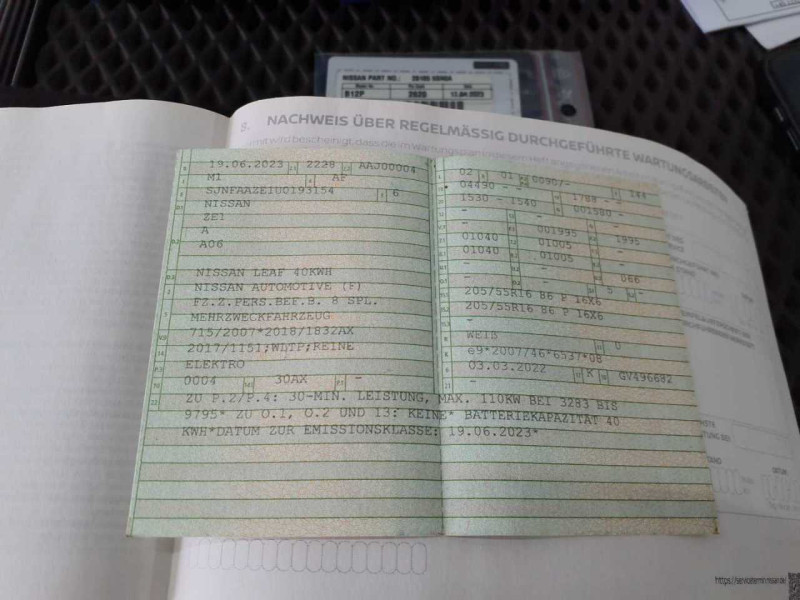 NISSAN PART NO.:
B12P 2020 13 Jun 2023
8. NACHWEIS ÜBER REGELMÄSSIG DURCHGEFÜHRTE WARTUNGSARBEITEN
19.06.2023 2228 AAJ00004
M1 AF
SJNFAAZE1U0193154 6
NISSAN
ZE1
A
A06
NISSAN LEAF 40KWH
NISSAN AUTOMOTIVE (F)
FZ.Z.PERS.BEF.B. 8 SPL.
MEHRZWECKFAHRZEUG
715/2007*2018/1832AX
2017/1151;WLTP;REINE
ELEKTRO
0004 30AX -
02 01 00907- 144
04490 - - 1788 - -
1530 - 1540 001580 -
- - -
- 001995 1995
01040 01005 -
01040 01005 -
- - 066
- - 5 -
205/55R16 86 P 16X6
205/55R16 86 P 16X6
-
WEIß 0
e9*2007/46*6537*08
03.03.2022 K GV496682
-
ZU P.2/P.4: 30-MIN. LEISTUNG, MAX. 110KW BEI 3283 BIS
9795* ZU O.1, O.2 UND 13: KEINE* BATTERIEKAPAZITÄT 40
KWH*DATUM ZUR EMISSIONSKLASSE: 19.06.2023*